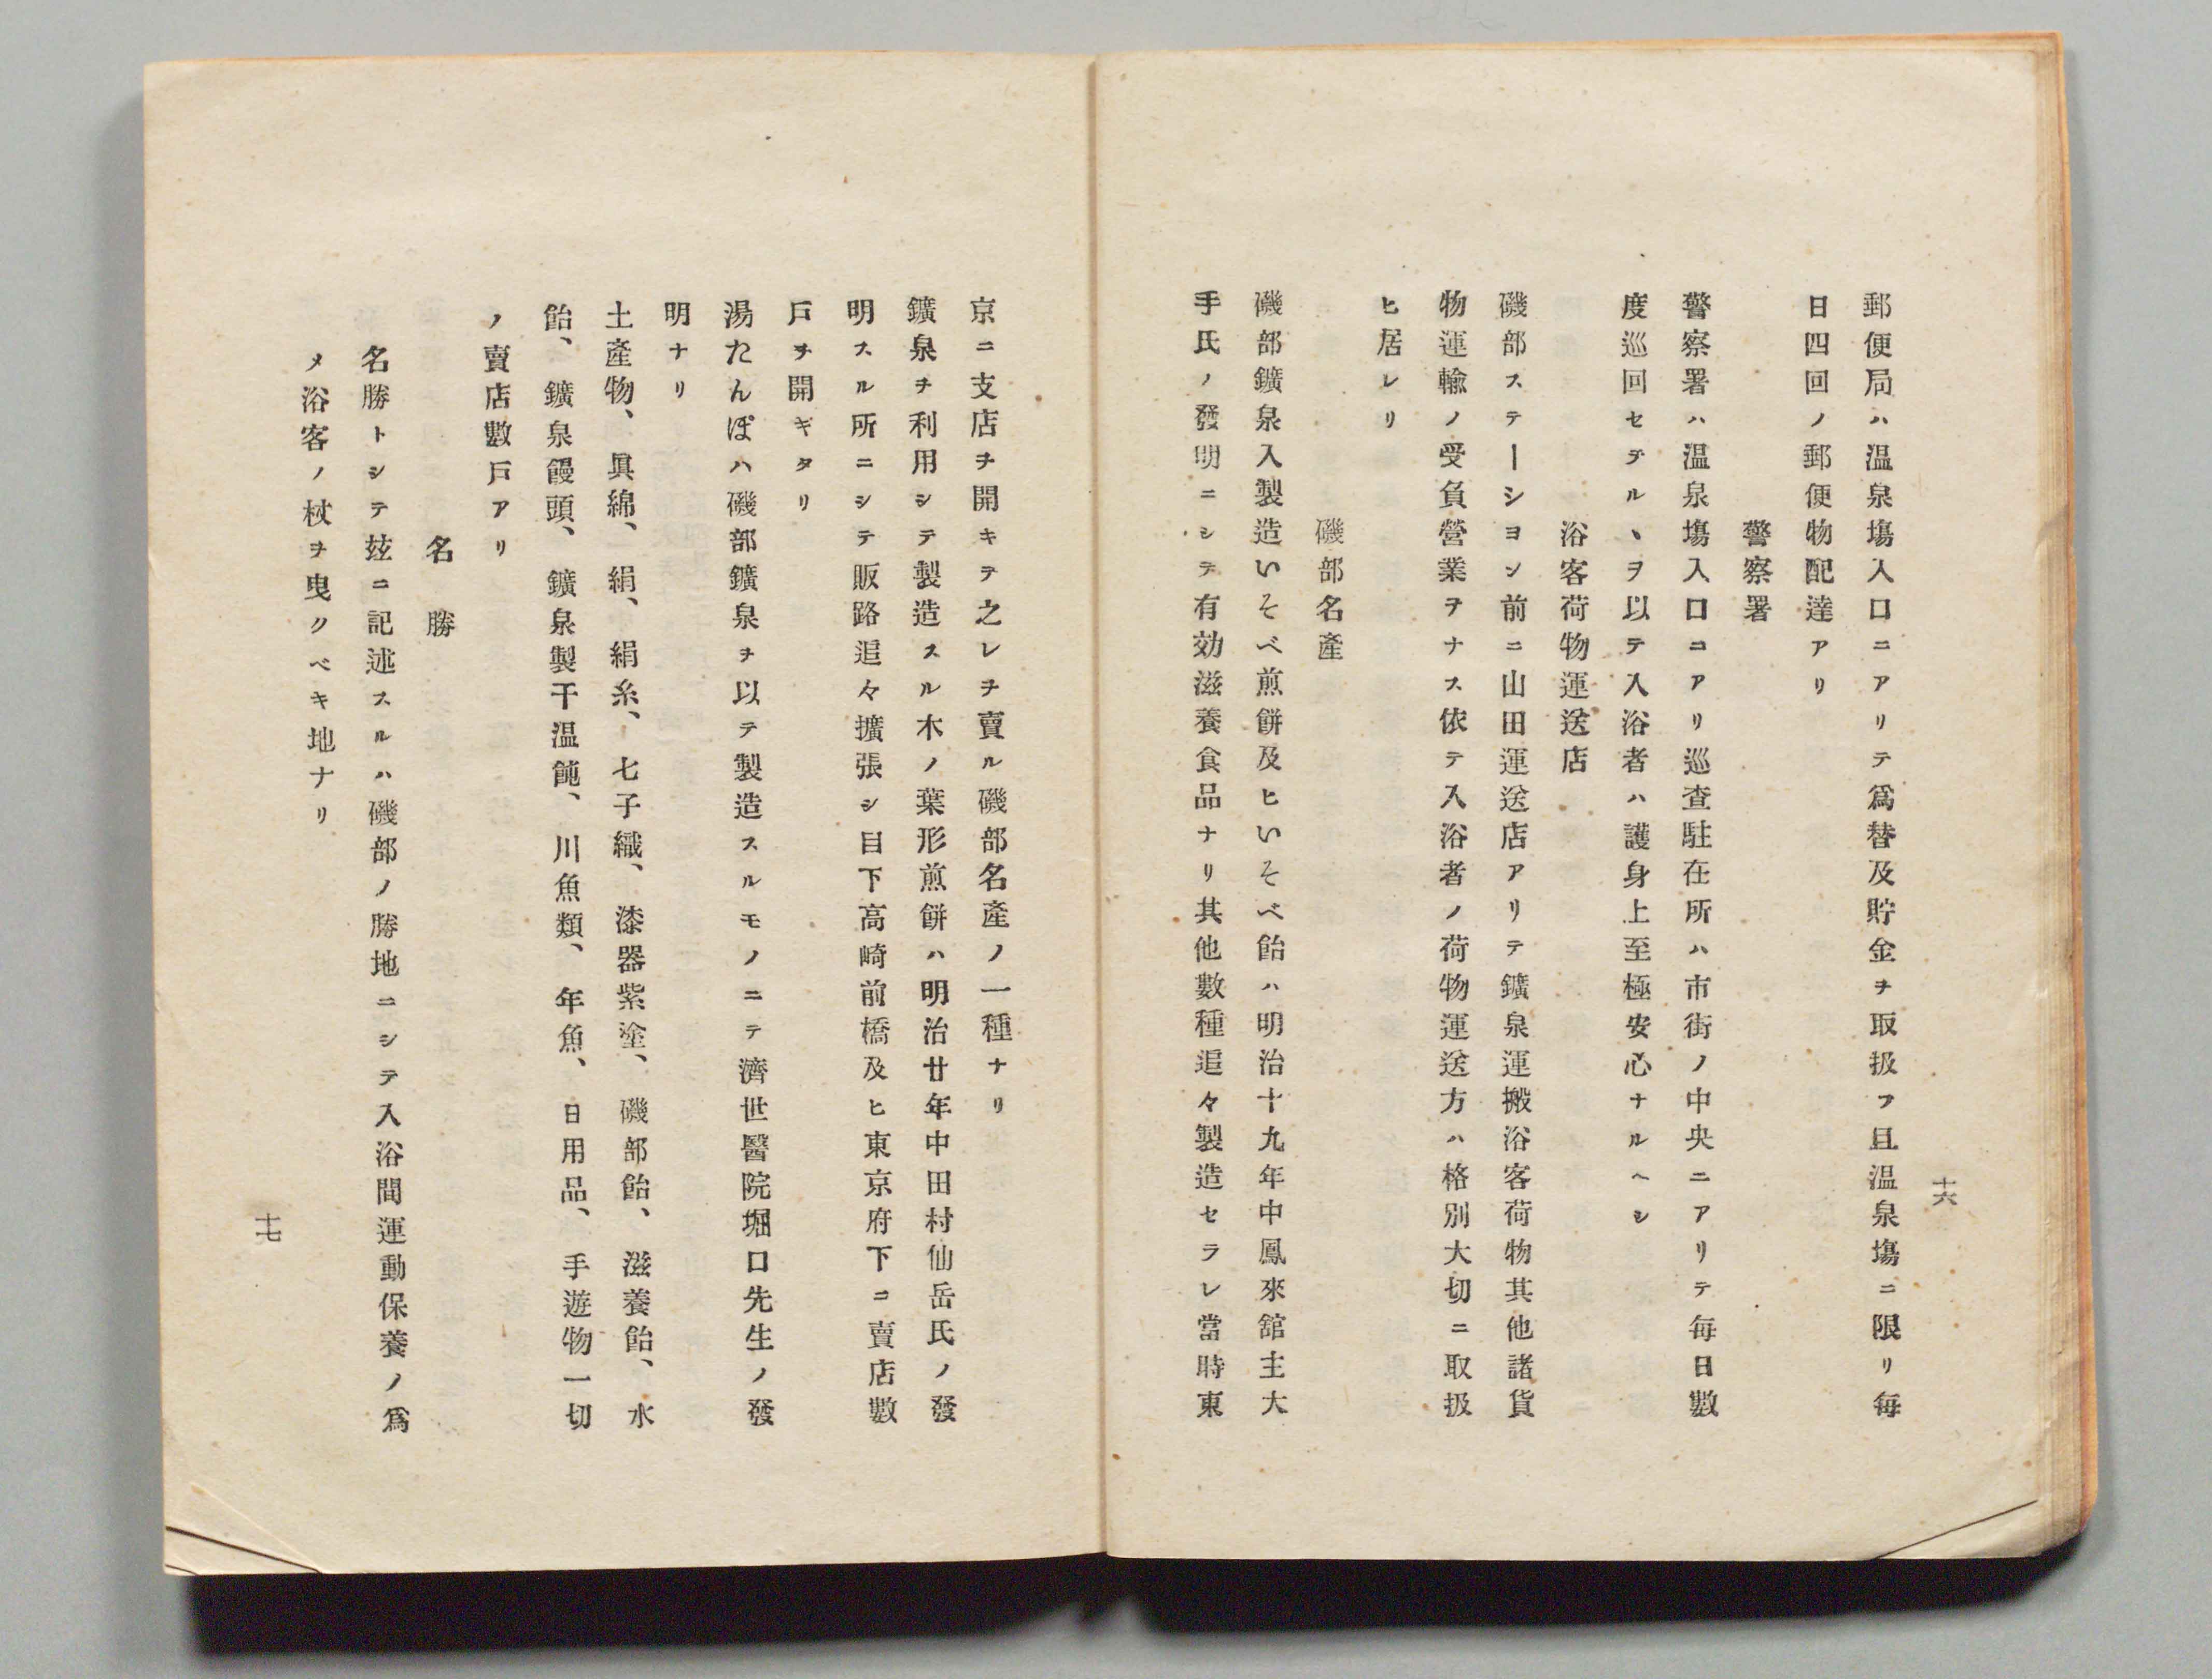 十六
郵便局ハ温泉塲入口ニアリテ爲替及貯金ヲ取扱フ且温泉塲ニ限リ毎
日四回ノ郵便物配達アリ
警察署
警察署ハ温泉塲入口ニアリ巡査駐在所ハ市街ノ中央ニアリテ毎日數
度巡回セラルヽヲ以テ入浴者ハ護身上至極安心ナルヘシ
浴客荷物運送店
磯部ステーシヨン前ニ山田運送店アリテ鑛泉運搬浴客荷物其他諸貨
物運輸ノ受負營業ヲナス依テ入浴者ノ荷物運送方ハ格別大切ニ取扱
ヒ居レリ
磯部名產
磯部鑛泉入製造いそべ煎餅及ヒいそべ飴ハ明治十九年中鳳來舘主大
手氏ノ發明ニシテ有効滋養食品ナリ其他數種追々製造セラレ當時東
京ニ支店ヲ開キテ之レヲ賣ル磯部名產ノ一種ナリ
鑛泉ヲ利用シテ製造スル木ノ葉形煎餅ハ明治廿年中田村仙岳氏ノ發
明スル所ニシテ販路追々擴張シ目下高崎前橋及ヒ東京府下ニ賣店數
戸ヲ開ギタリ
湯たんぽハ磯部鑛泉ヲ以テ製造スルモノニテ濟世醫院堀口先生ノ發
明ナリ
土產物、眞綿、絹、絹糸、七子織、漆器紫塗、磯部飴、滋養飴、水
飴、鑛泉饅頭、鑛泉製干温飩、川魚類、年魚、日用品、手遊物一切
ノ賣店數戸アリ
名勝
名勝トシテ玆ニ記述スルハ磯部ノ勝地ニシテ入浴間運動保養ノ爲
メ浴客ノ杖ヲ曳クベキ地ナリ
十七